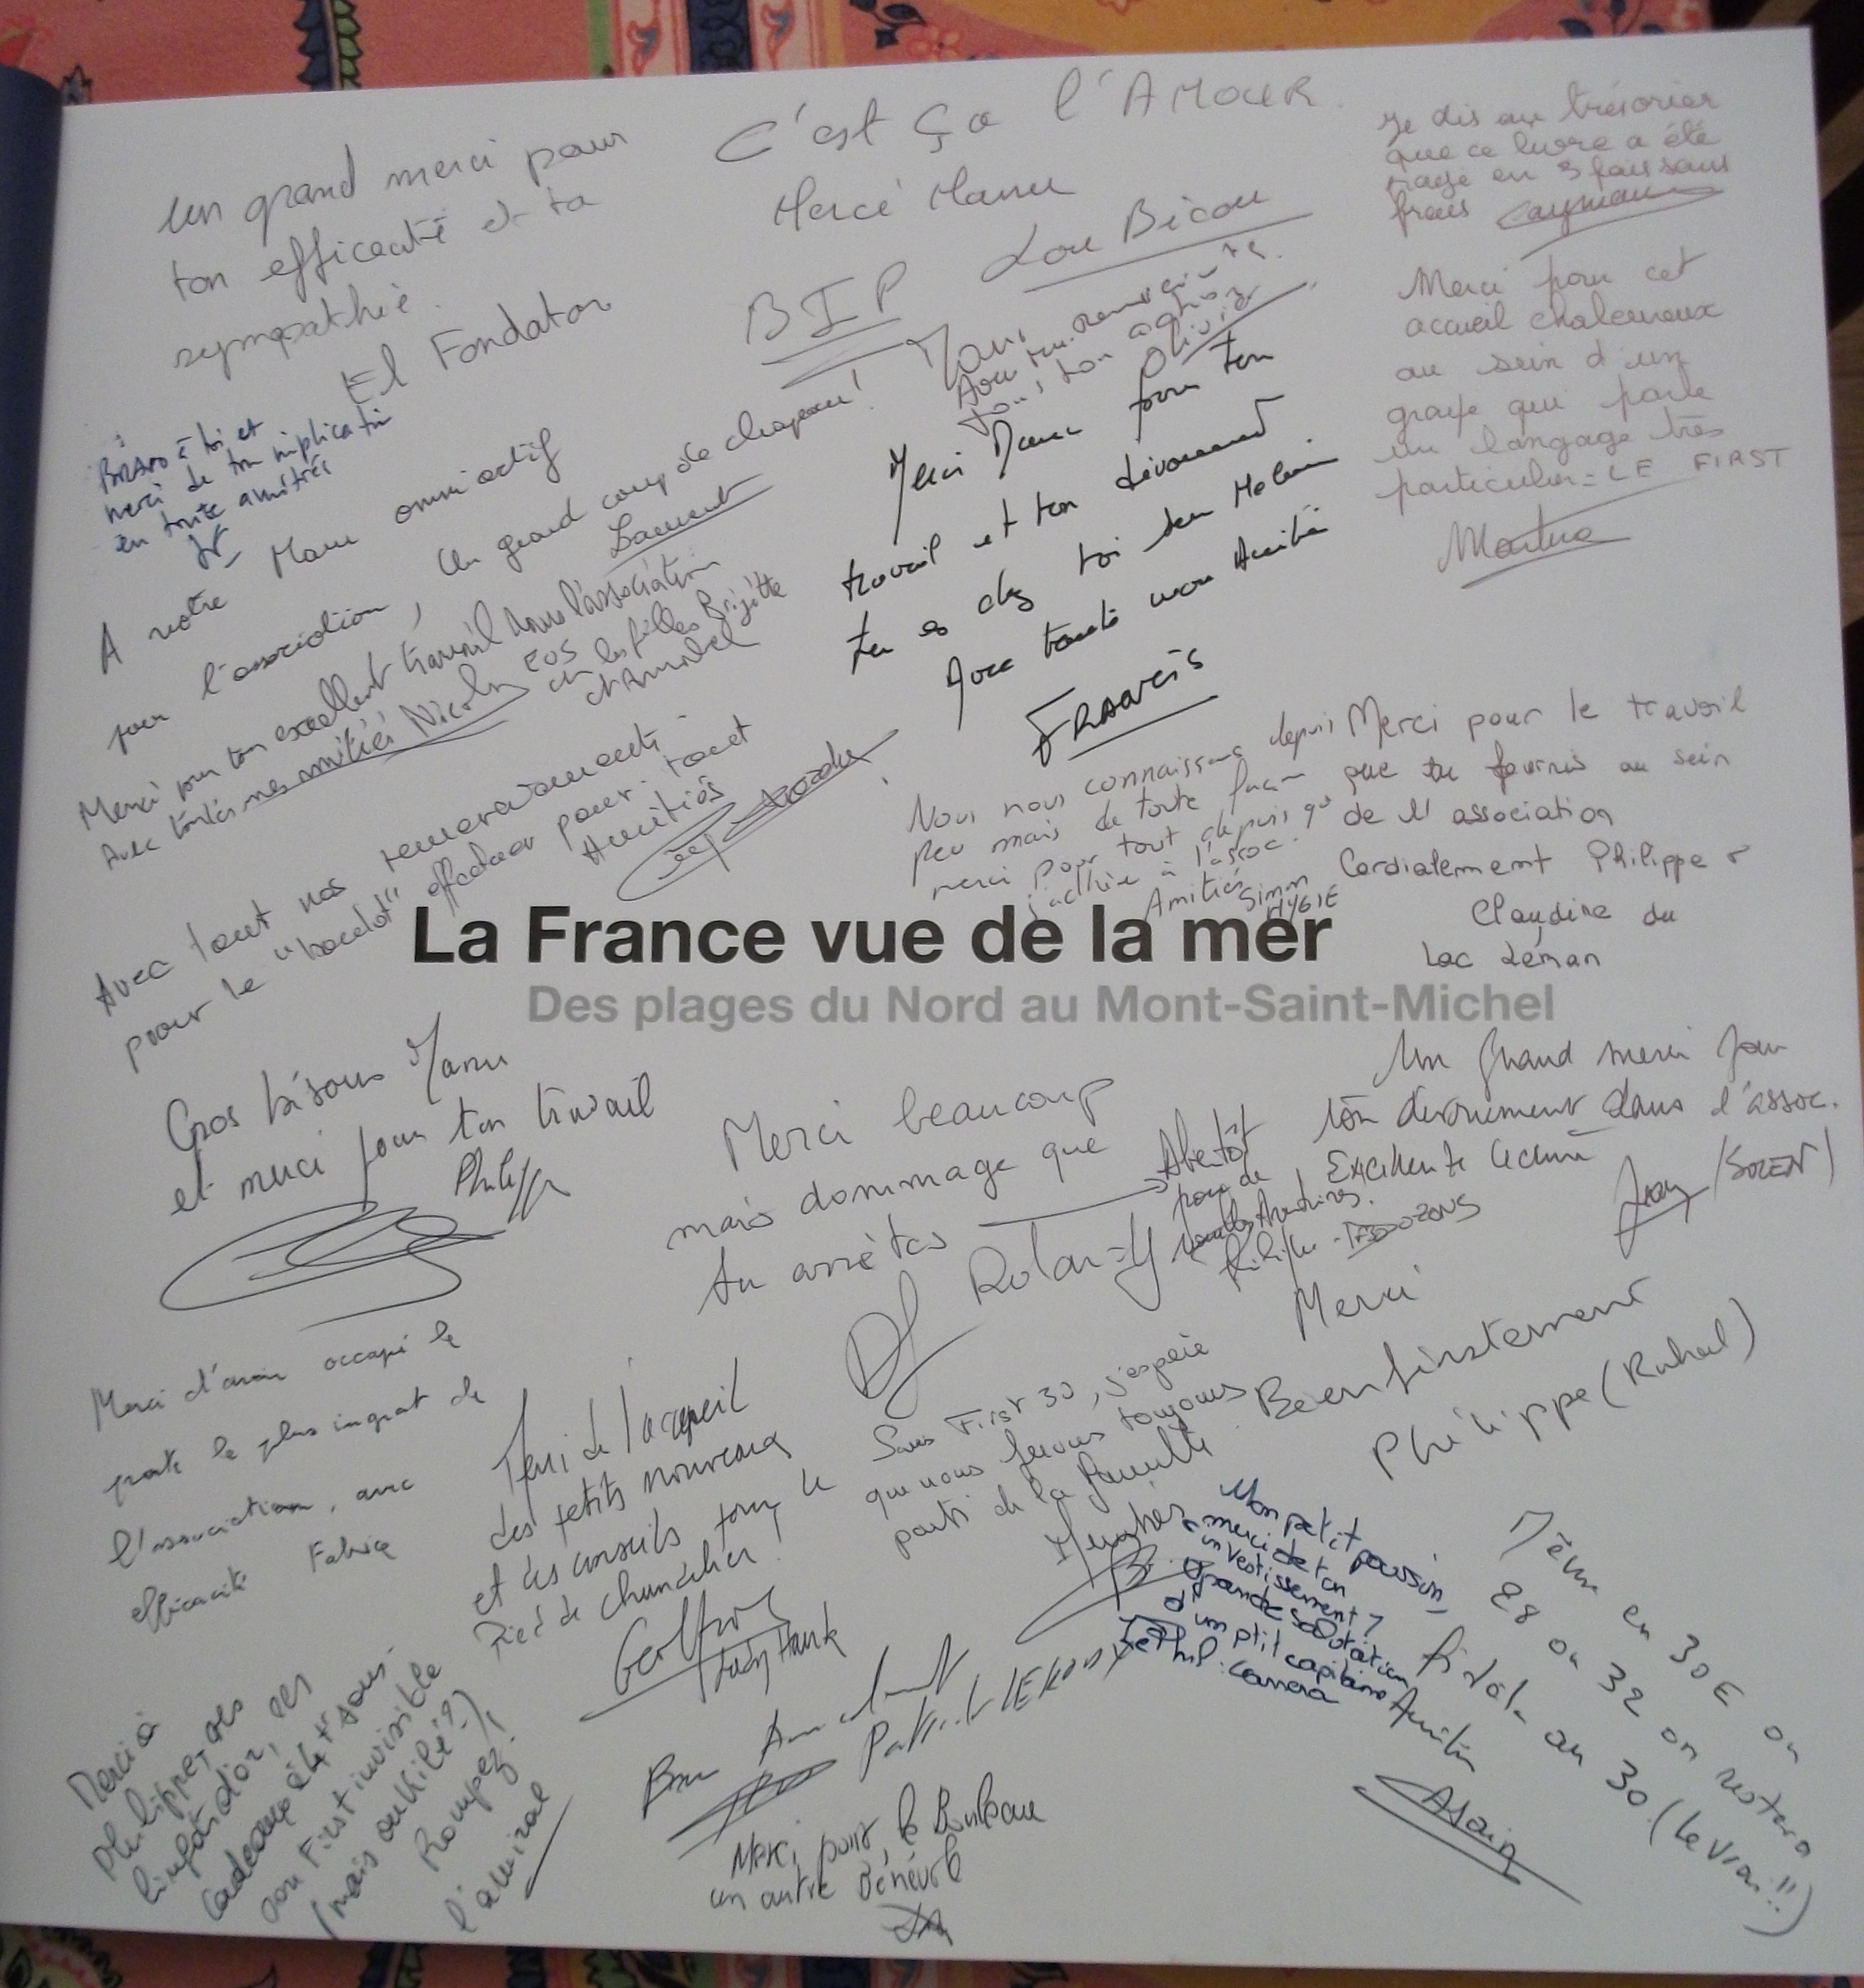 un grand merci pour
ton efficacité et ta
sympathie.
El Fondator
C'est ça l'AMOUR.
Mercé Manu
Lou Bicou
BIP
Je dis au trésorier
que ce livre a été
payé en 3 fois sans
frais
Merci pour cet
accueil chaleureux
au sein d'un
groupe qui parle
un langage très
particulier = LE FIRST
BRAVO à toi et
merci de ton implication
en toute amitié
A notre Manu omni actif
pour l'association, un grand coup de chapeau!
Laurent
Manu
Avec tous remerciements
pour ton action
Olivier
Merci Manu pour ton
travail et ton dévouement
tu es chez toi sur Melanie
Avec toute mon Amitié
FRANCIS
Merci pour ton excellent travail dans l'association
Avec toutes mes amitiés Nicolas EOS
et les filles Brigitte
et
Avec tout nos remerciements
pour le "boulot" effectuer pour tout
Amitiés
Nous nous connaissons depuis
peu mais de toute façon
merci pour tout depuis que
j'adhère à l'assoc.
Amitiés
Simon
HYGIE
Merci pour le travail
que tu fournis au sein
de l'association
Cordialement Philippe &
Claudine du
Lac Léman
La France vue de la mer
Des plages du Nord au Mont-Saint-Michel
Gros bisous Manu
et merci pour ton travail
Philippe
Merci beaucoup
mais dommage que
tu arrêtes
A bientôt
pour de
nouvelles Aventures.
Philippe
Un grand merci pour
ton dévouement dans l'assoc.
Excellente lecture
Merci
Bienfirstement
Philippe (Rahal)
Merci d'avoir occupé le
poste le plus ingrat de
l'association, avec
efficacité Fabrice
Merci de l'accueil
des petits nouveaux
et des conseils pour le
Pied de chandelier!
Geoffroy
Lady Hawk
Sans First 30, j'espère
que nous ferons toujours
partis de la famille.
Amitiés
Mon petit poussin,
merci de ton
investissement,
grande salutation
d'un ptit capitaine
Même en 30E ou
28 ou 32 on restera
fidèle au 30 (le vrai!!)
Amitiés
Alain
Merci à
Philippe, ses
cadeaux et
son First invisible
(mais oukilé?)
Rompez!
l'amiral
Bon
Patrick LEROUX
Merci pour le Bouleau
un autre bénévole